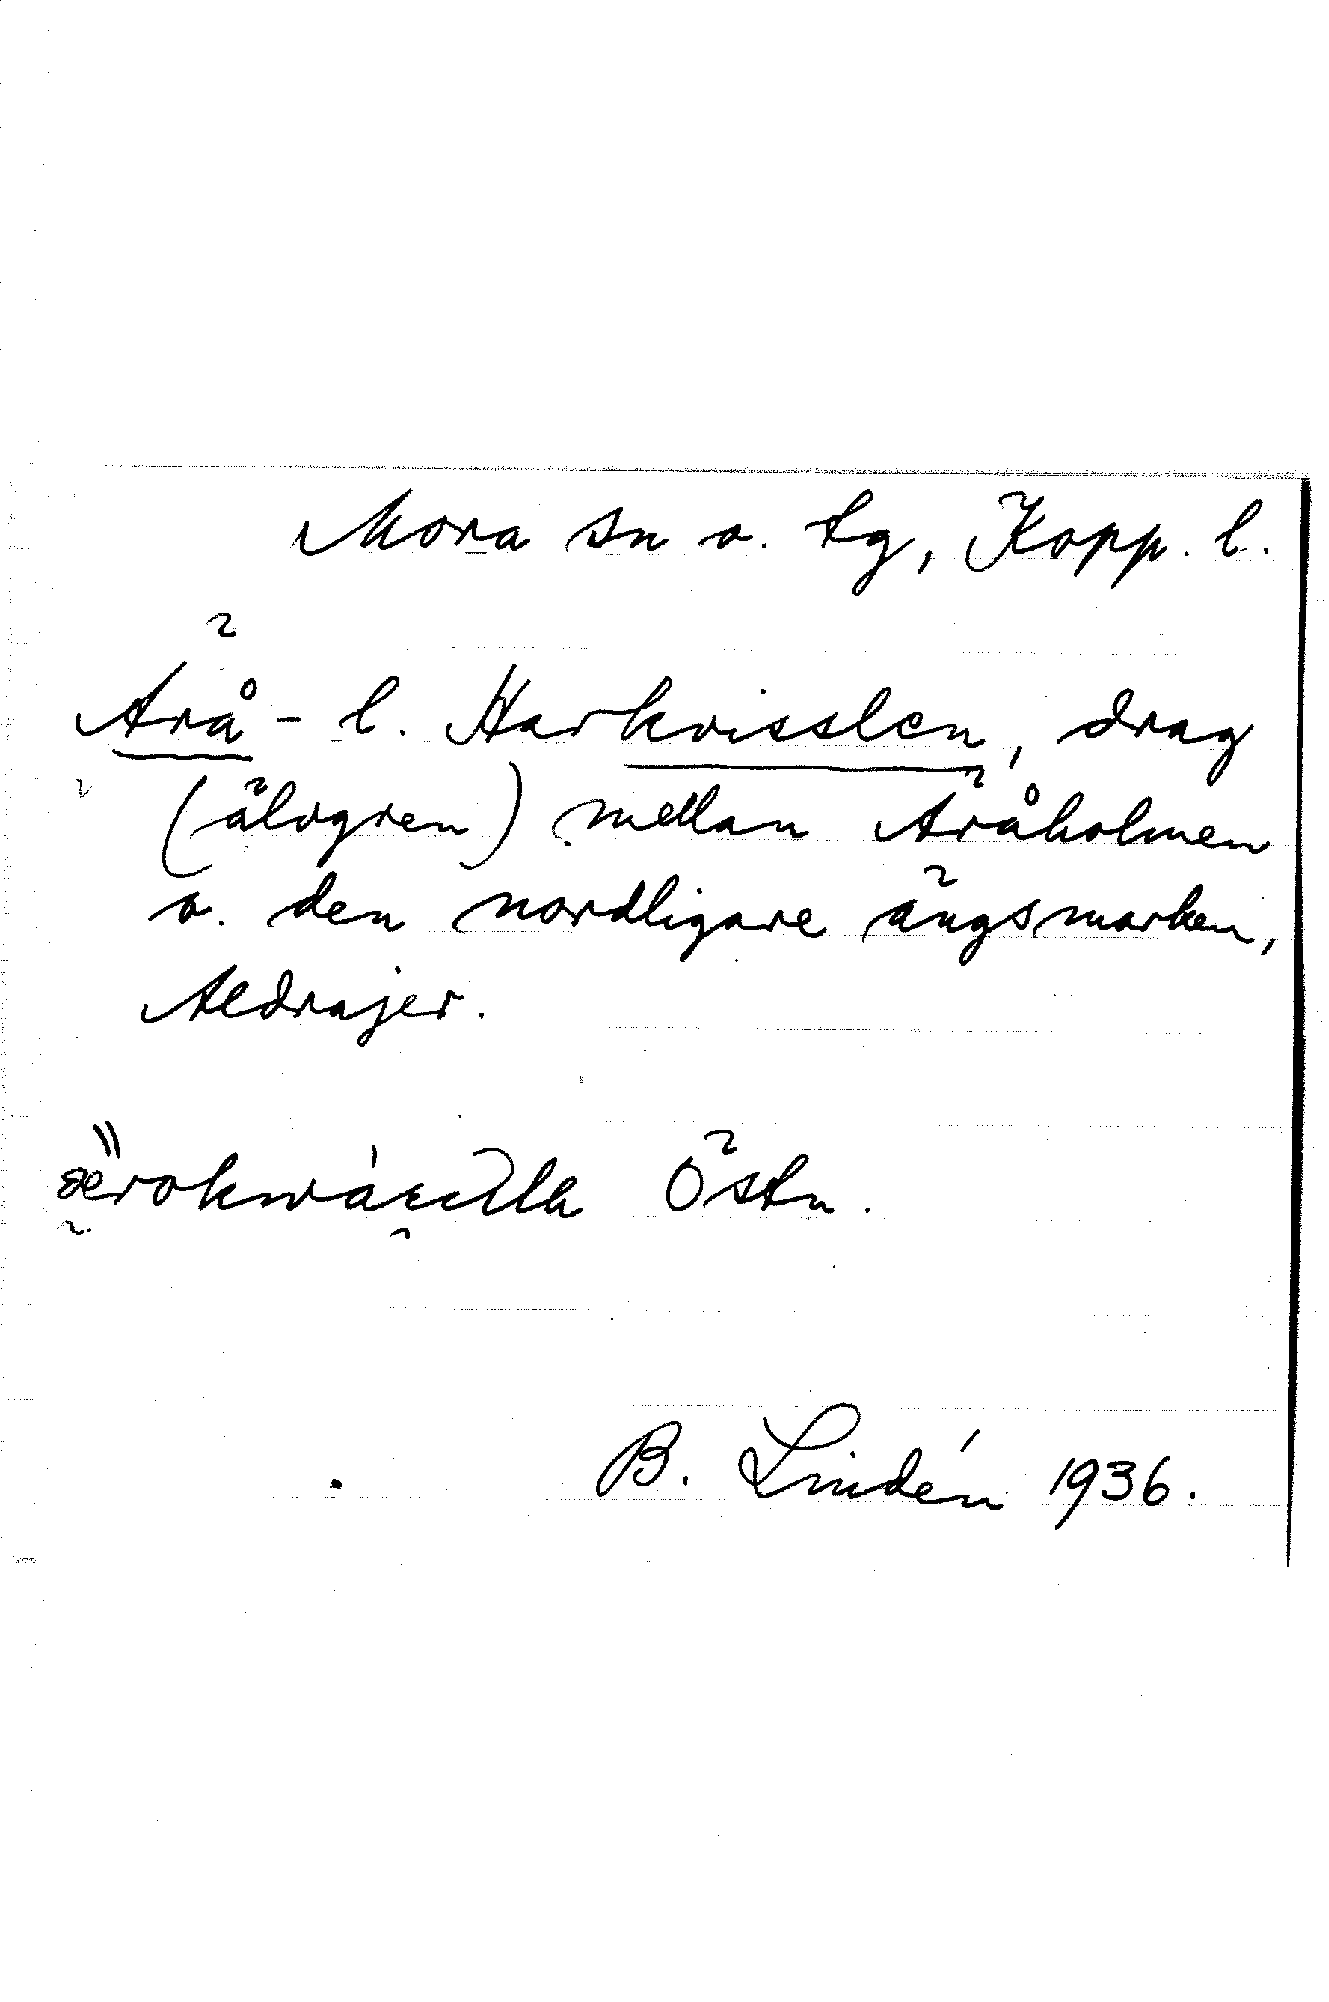 Mora sn o. tg, Kopp. l.
Ärå- l. Harkvisslen, drag
(älvgren) mellan Äråholmen
o. den nordligare ängsmarken,
Aldrajer.
Östn.
B. Lindén 1936.